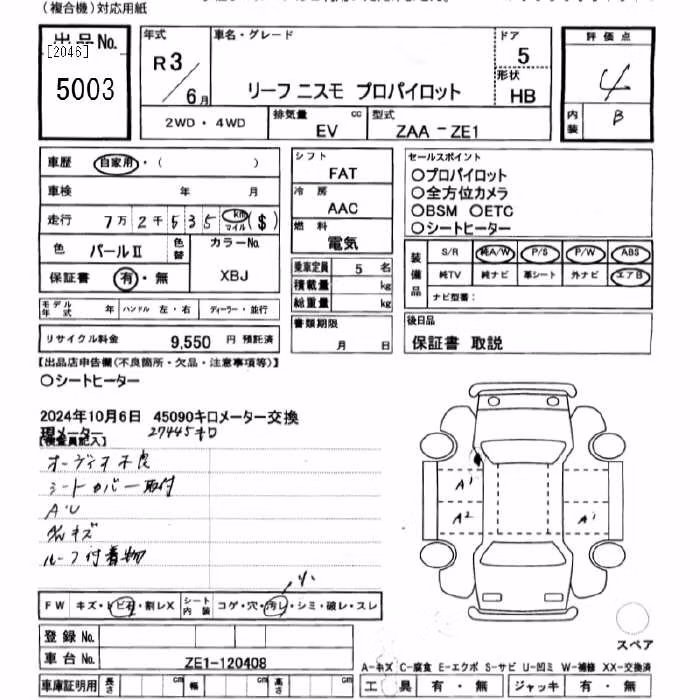 (複合機)対応用紙
出品No.
[2046]
5003
年式
R3
6月
車名・グレード
リーフ ニスモ プロパイロット
ドア
5
形状
HB
評価点
4
内装
B
2WD・4WD
排気量
cc
EV
型式
ZAA-ZE1
車歴
自家用・( )
車検 年 月
走行 7万2千535 km マイル ($)
色 パールⅡ 色替
カラーNo.
XBJ
保証書 有・無
モデル年式 年 ハンドル 左・右 ディーラー・並行
リサイクル料金 9,550 円 預託済
シフト
FAT
冷房
AAC
燃料
電気
乗車定員 5 名
積載量 kg
総重量 kg
書類期限
月 日
セールスポイント
○プロパイロット
○全方位カメラ
○BSM ○ETC
○シートヒーター
装備品
S/R 純A/W P/S P/W ABS
純TV 純ナビ 革シート 外ナビ エアB
ナビ型番:
後日品
保証書 取説
【出品店申告欄(不良箇所・欠品・注意事項等)】
○シートヒーター
2024年10月6日 45090キロメーター交換
現メーター 27445キロ
【検査員記入】
オーディオ不良
シートカバー取付
A・U
ルーフ付着物
FW キズ・トビ石・割レX
シート内装 コゲ・穴・汚レ・シミ・破レ・スレ
小
A1
A2
A1
スペア
登録No.
車台No. ZE1-120408
車庫証明用 長さ cm 幅 cm 高さ cm
A-キズ C-腐食 E-エクボ S-サビ U-凹ミ W-補修 XX-交換済
工具 有・無 ジャッキ 有・無